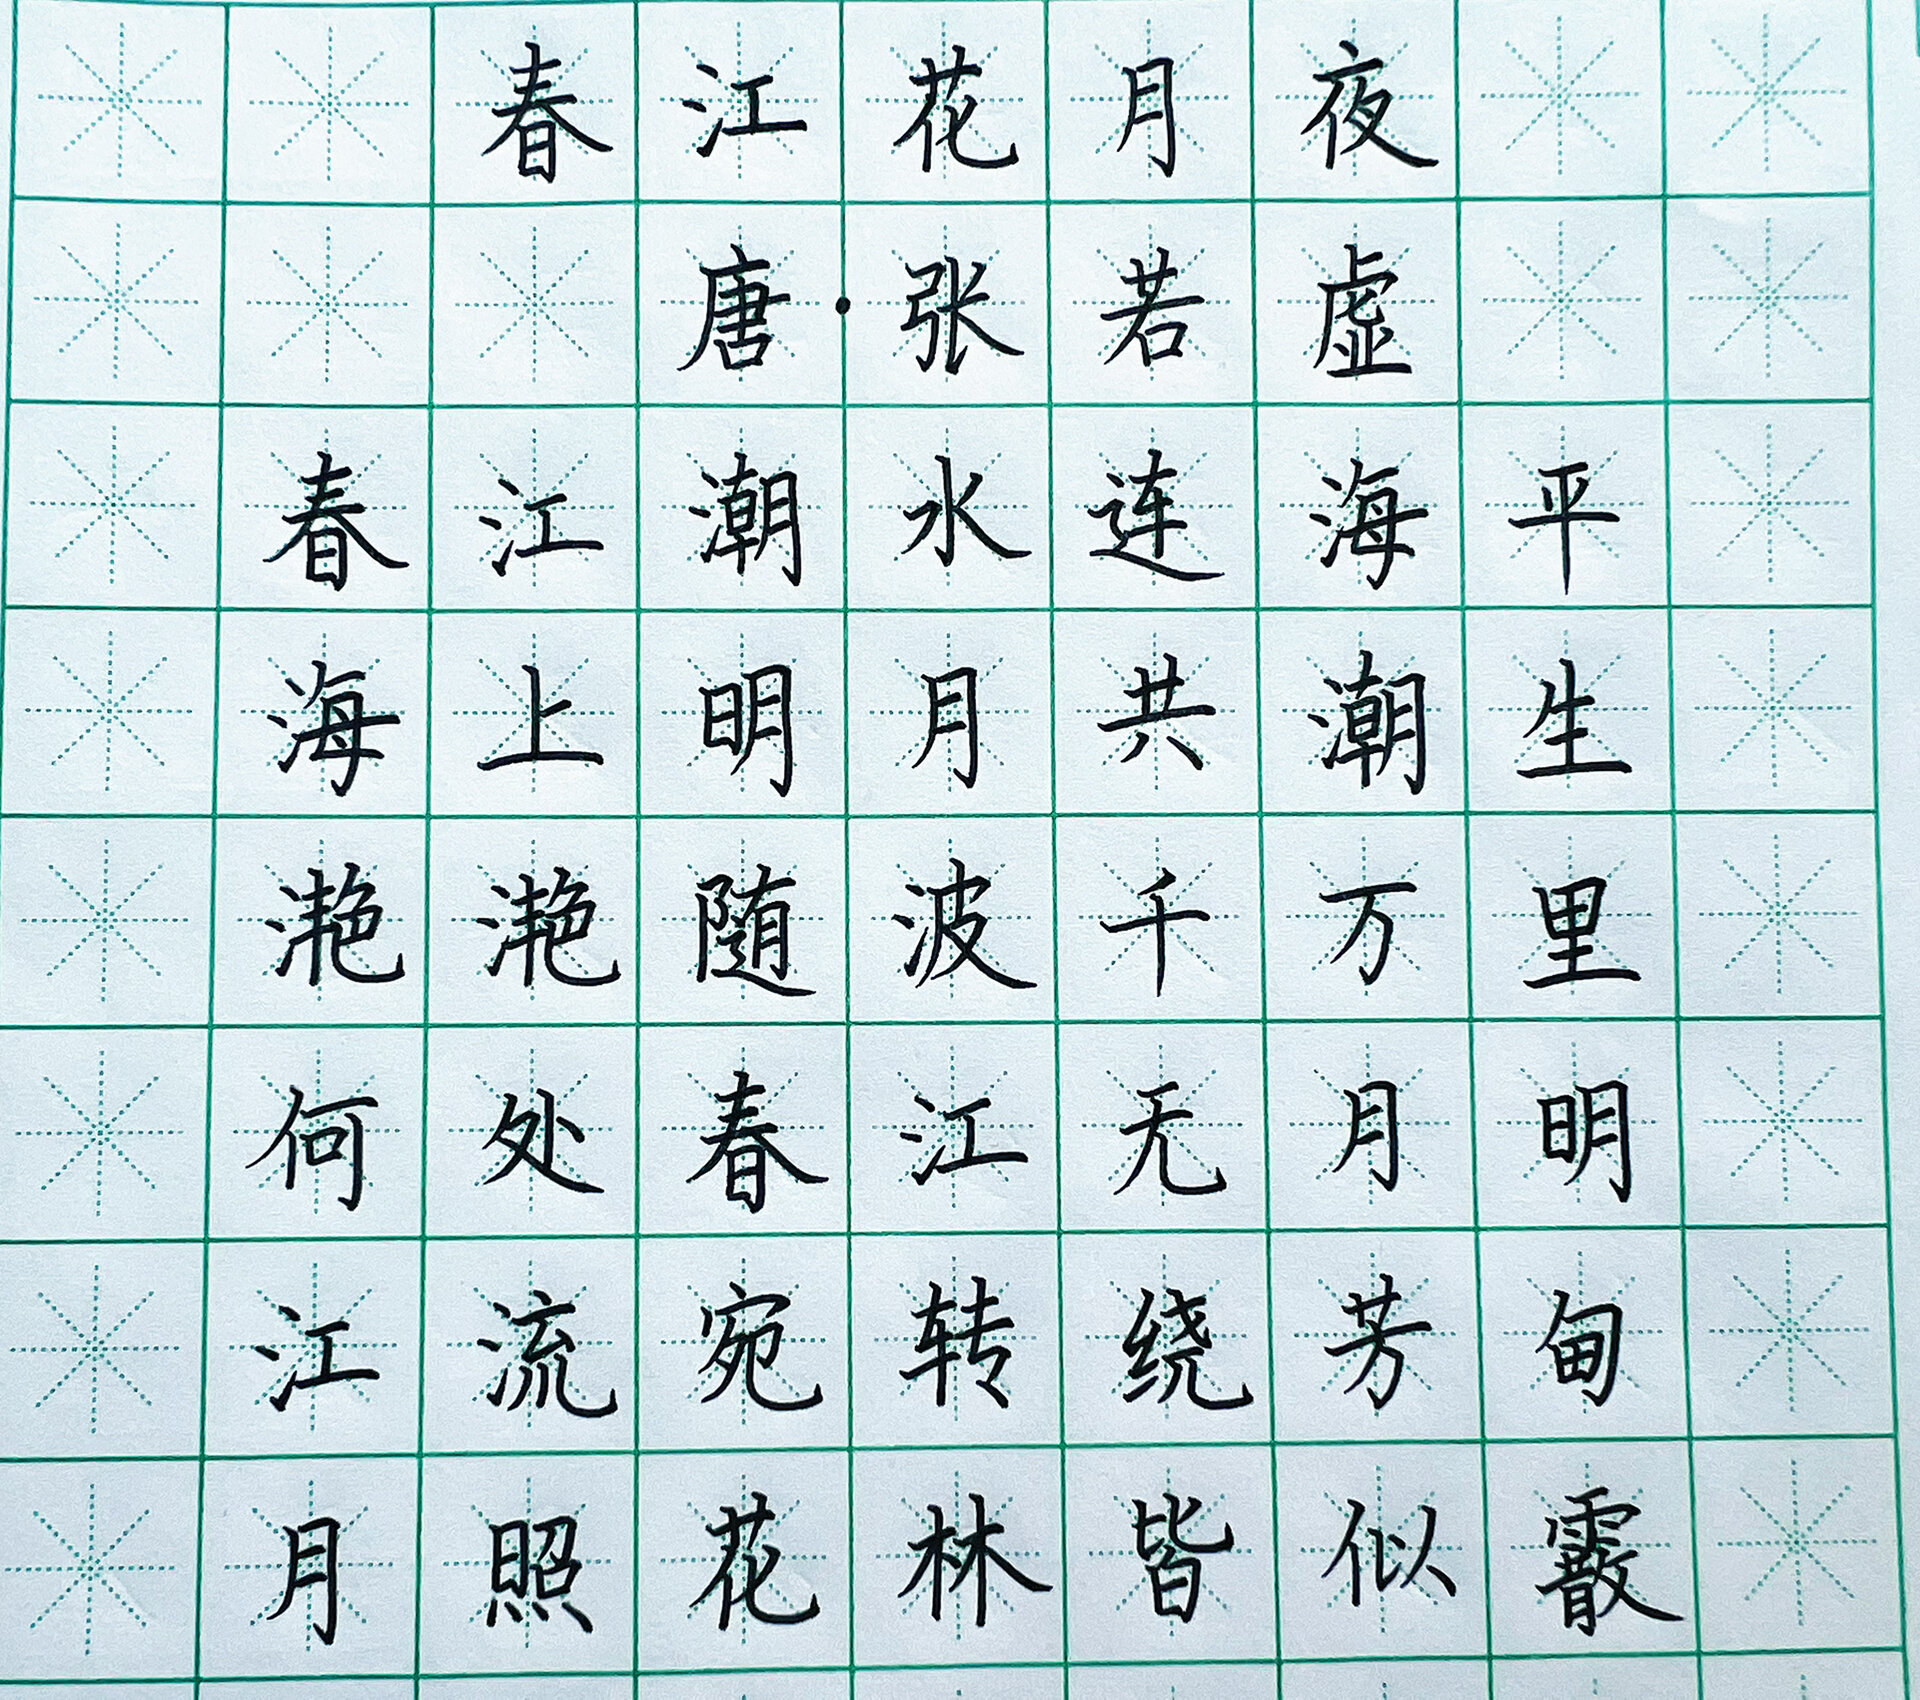 春江花月夜
唐·张若虚
春江潮水连海平
海上明月共潮生
滟滟随波千万里
何处春江无月明
江流宛转绕芳甸
月照花林皆似霰